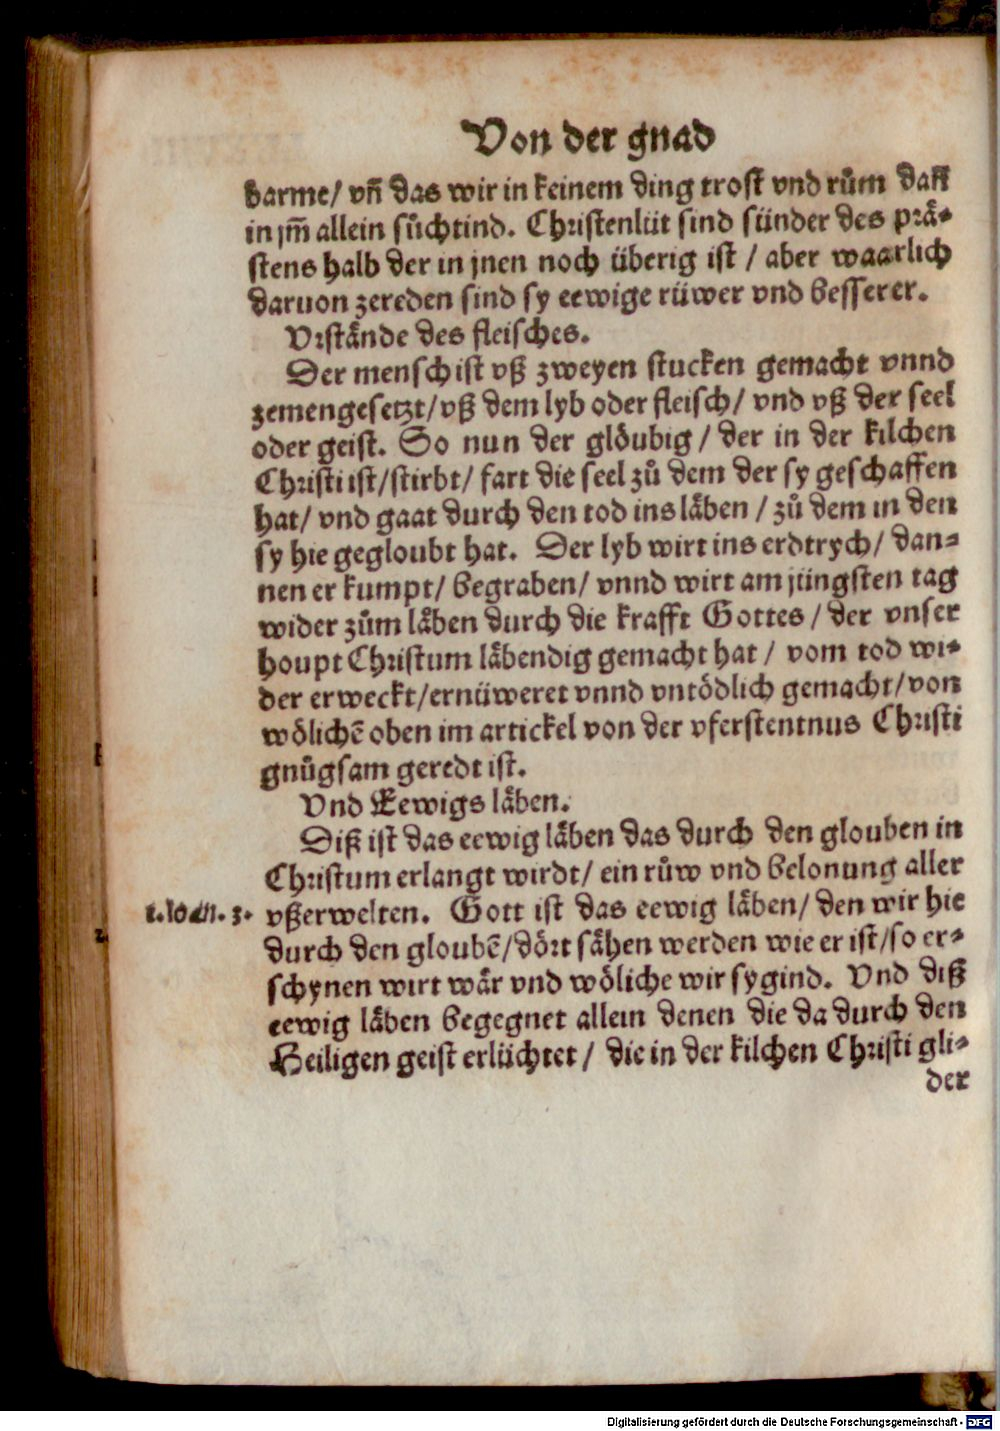 Von der gnad
barme/ vn̄ das wir in keinem ding trost vnd rům dañ
in jm̄ allein sůchtind. Christenlüt sind sünder des prä-
stens halb der in jnen noch überig ist / aber waarlich
daruon zereden sind sy eewige rüwer vnd besserer.
Vrstände des fleisches.
Der mensch ist vß zweyen stucken gemacht vnnd
zemengesetzt/ vß dem lyb oder fleisch/ vnd vß der seel
oder geist. So nun der glöubig / der in der kilchen
Christi ist/ stirbt/ fart die seel zů dem der sy geschaffen
hat/ vnd gaat durch den tod ins läben / zů dem in den
sy hie gegloubt hat. Der lyb wirt ins erdtrych/ dan-
nen er kumpt/ begraben/ vnnd wirt am jüngsten tag
wider zům läben durch die krafft Gottes / der vnser
houpt Christum läbendig gemacht hat / vom tod wi-
der erweckt/ ernüweret vnnd vntödlich gemacht/ von
wölichē oben im artickel von der vferstentnus Christi
gnůgsam geredt ist.
Vnd Eewigs läben.
Diß ist das eewig läben das durch den glouben in
Christum erlangt wirdt/ ein růw vnd belonung aller
1. Ioan. 3. vßerwelten. Gott ist das eewig läben/ den wir hie
durch den gloubē/ dört sähen werden wie er ist/ so er-
schynen wirt wär vnd wöliche wir sygind. Vnd diß
eewig läben begegnet allein denen die da durch den
Heiligen geist erlüchtet / die in der kilchen Christi gli-
der
Digitalisierung gefördert durch die Deutsche Forschungsgemeinschaft - DFG